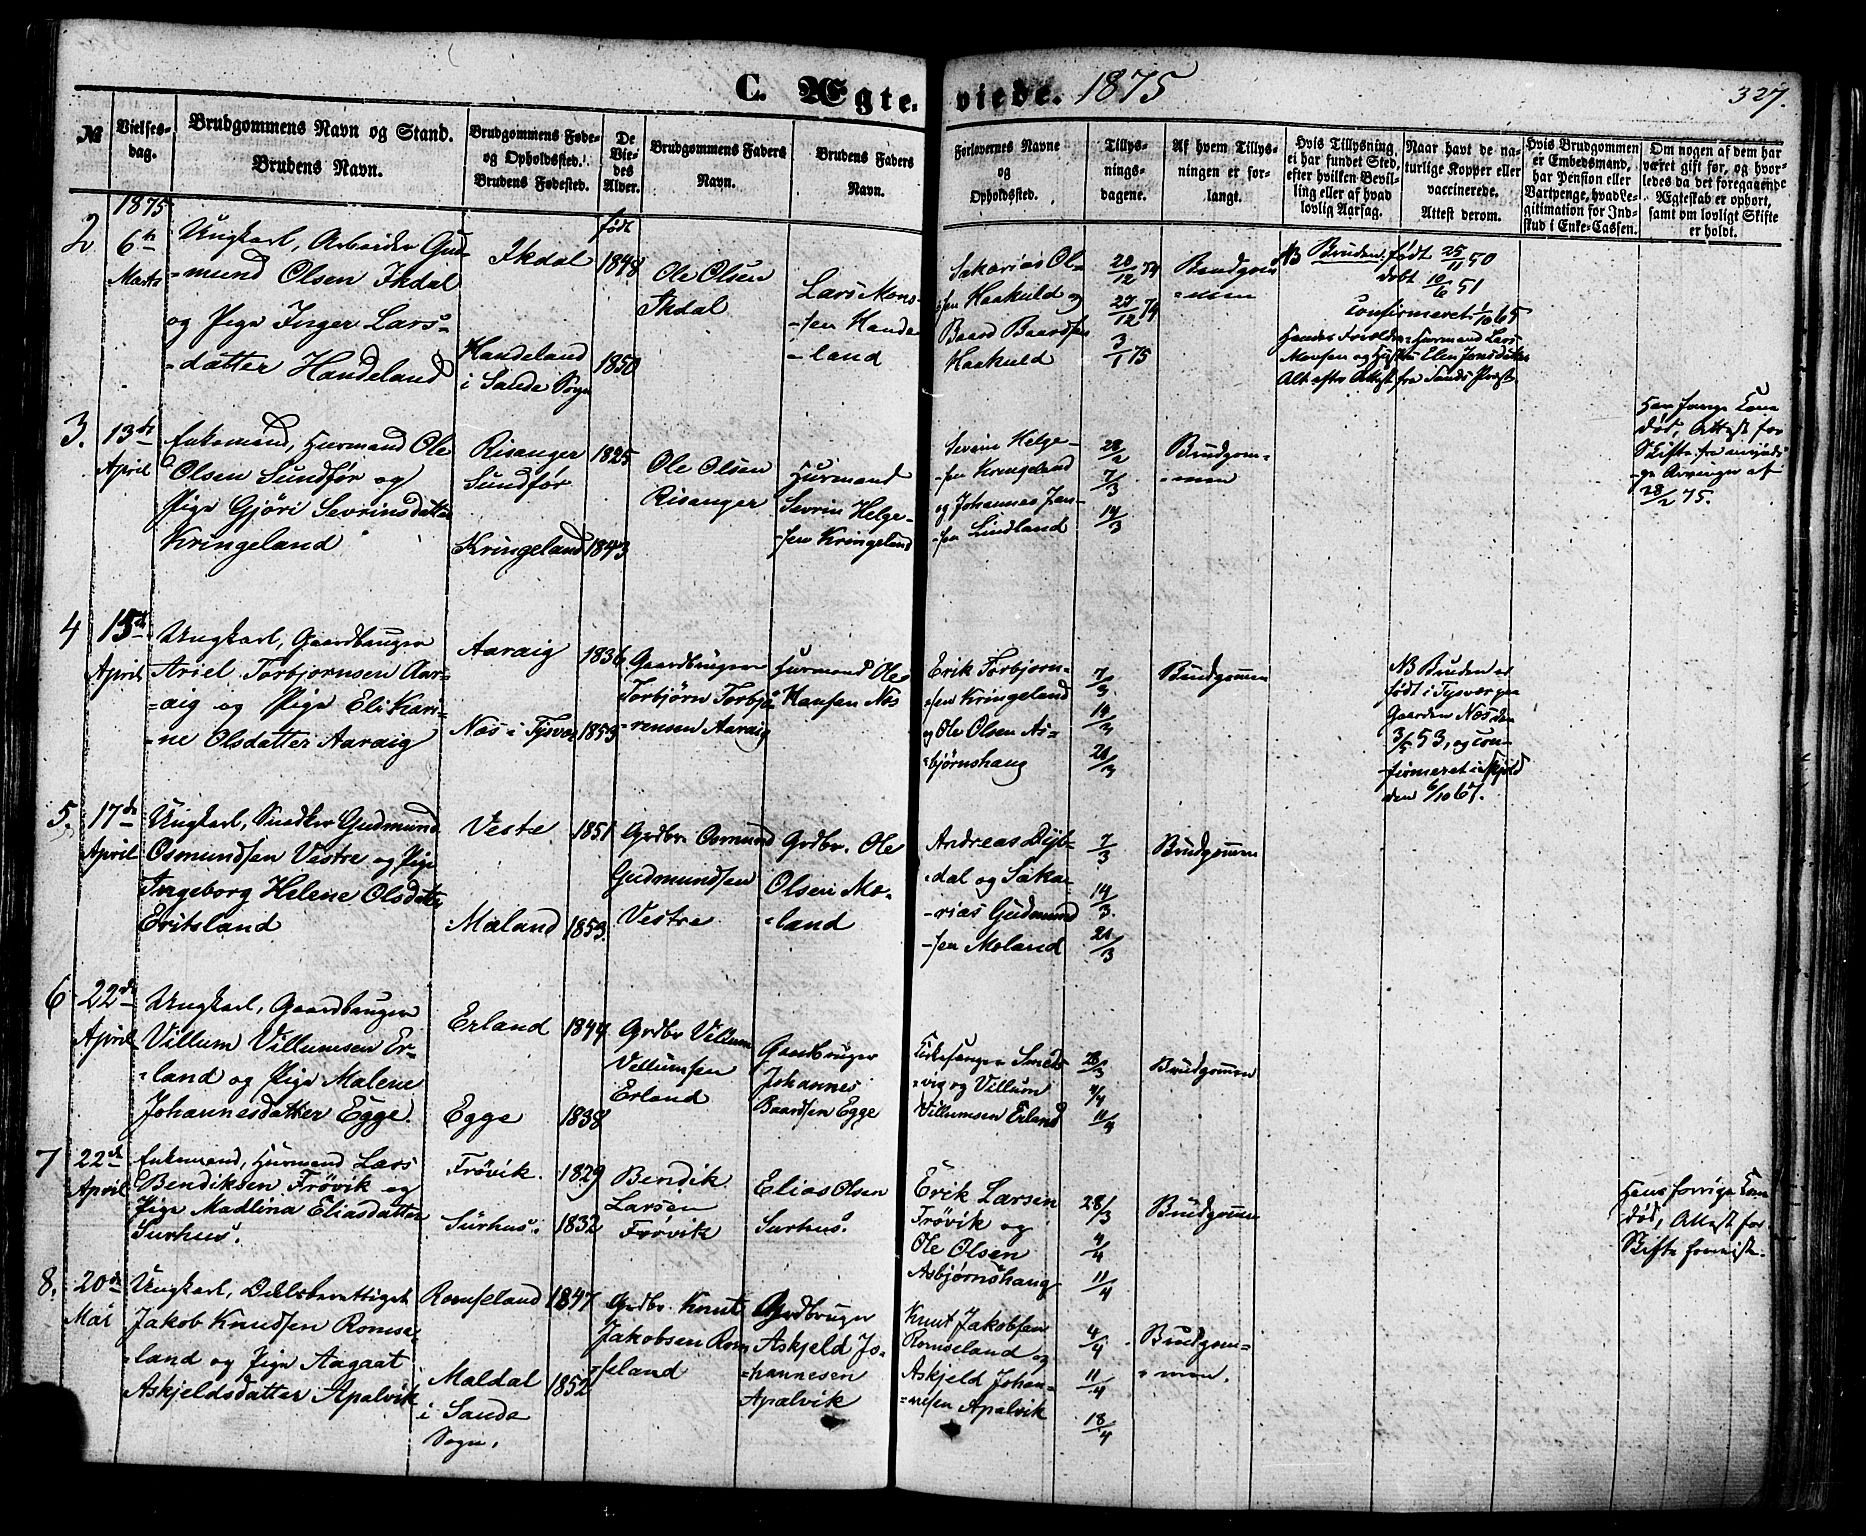 C. Ægteviede. 1875
327.
№
Vielses-
dag.
Brudgommens Navn og Stand.
Brudens Navn.
Brudgommens Føde-
og Opholdssted.
Brudens Fødested.
De
Vie-
des
Alder.
Brudgommens Faders
Navn.
Brudens Faders
Navn.
Forlovernes Navne
og
Opholdssted.
Tillys-
nings-
dagene.
Af hvem Tillys-
ningen er for-
langt.
Hvis Tillysning
ei har fundet Sted,
efter hvilken Bevil-
ling eller af hvad
lovlig Aarsag.
Naar havt de na-
turlige Kopper eller
vaccinerede.
Attest derom.
Hvis Brudgommen
er Embedsmand,
har Pension eller
Vartpenge, hvad Le-
gitimation for Ind-
skud i Enke-Cassen.
Om nogen af dem har
været gift før, og hvor-
ledes da det foregaaende
Ægteskab er ophørt,
samt om lovligt Skifte
er holdt.
1875
2
6te
Marts
Ungkarl, Arbeider Gud-
-mund Olsen Ikdal
og Pige Inger Lars-
-datter Handeland
Ikdal
Handeland
i Sande Sogn
født
1848
1850
Ole Olsen
Ikdal
Lars Mons-
-sen Hande
-land
Sakarias Ol-
-sen Haakuld og
Baard Baardsen
Haakuld
20/12 74
27/12 74
3/1 75
Brudgom
-men
NB Bruden født 25/11 50
døbt 10/6 51
Confirmeret 1/10 65
Hendes Forældre: Huusmand Lars
Monsen og Hustru Elen Jonsdatter
Alt efter Attest fra Sands Præst
3.
13de
April
Enkemand, Huusmand Ole
Olsen Sundfør og
Pige Gjøri Sevrinsdatter
Kringeland
Risanger
Sundfør
Kringeland
1825
1843
Ole Olsen
Risanger
Huusmand
Sevrin Helge-
-sen Kringeland
Sevrin Helge-
-sen Kringeland
og Johannes Jen-
-sen Lindland
28/2
7/3
14/3
Brudgom-
-men
Hans forrige Kone
død, Attest for
Skifte fra myndi-
ge Arvinger af
28/2 75.
4
15de
April
Ungkarl, Gaardbruger
Ariel Torbjørnsen Aar-
-aig og Pige Eli Kari-
-ne Olsdatter Aaraig
Aaraig
Nos i Tysvær
1836
1853
Gaardbruger
Torbjørn Torbjø
-rensen Aaraig
Huusmand Ole
Hansen Nos
Erik Torbjørn-
-sen Kringeland
og Ole Olsen As-
-bjørnshaug
7/3
14/3
21/3
Brudgommen
NB Bruden er
født i Tysvær paa
Gaarden Nos den
3/5 53, og con-
firmeret i Skjold
den 6/10 67.
5
17de
April
Ungkarl, Snedker Gudmund
Osmundsen Vestre og Pige
Ingeborg Helene Olsdatter
Eritsland
Vestre
Moland
1851
1853.
Grdbr. Osmund
Gudmundsen
Vestre
Grdbr. Ole
Olsen Mo-
-land
Andreas Dyb-
-dal og Saka-
-rias Gudmund
-sen Moland
7/3
14/3
21/3
Brudgommen
6
22de
April
Ungkarl, Gaardbruger
Villum Villumsen Er-
-land og Pige Malene
Johannesdatter Egge.
Erland
Egge
1844
1838
Grdbr Villum
Villumsen
Erland
Gaardbruger
Johannes
Baardsen Egge
Kirkesanger Smeds-
-vig og Villum
Villumsen Erland
28/3
4/4
11/4
Brudgommen
7
22de
April
Enkemand, Huusmand Lars
Bendiksen Frövik og
Pige Madlina Eliasdatter
Surhus.
Frövik.
Surhus.
1829
1832
Bendik
Larsen
Frövik
Elias Olsen
Surhus.
Erik Larsen
Frövik og
Ole Olsen
Asbjørnshaug
28/3
4/4
11/4
Brudgommen
Hans forrige Kone
død, Attest for
Skifte forevist.
8.
20de
Mai
Ungkarl,
Jakob Knudsen Romse-
-land og Pige Aagaat
Askjeldsdatter Apalvik
Romseland
Maldal
i Sande
Sogn.
1847
1852
Grdbr. Knut
Jakobsen Rom
-seland
Grdbruger
Askjeld Jo-
-hannesen
Apalvik
Knut Jakobsen
Romseland og
Askjeld Johan-
-nesen Apalvik
4/4
11/4
18/4
Brudgom-
-men.